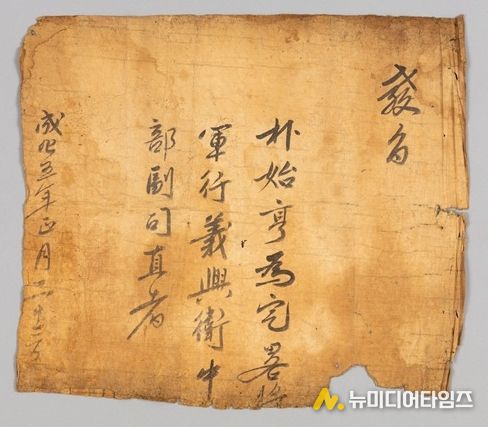 教旨
朴始亨為定畧將
軍行義興衛中
部副司直者
成化五年正月二十日
뉴미디어타임즈